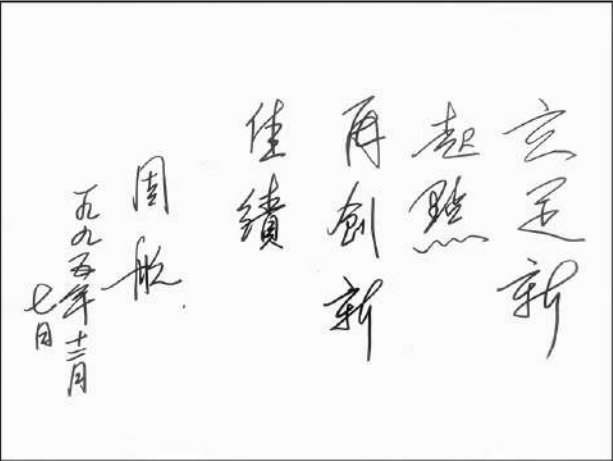 立足新
起點
再創新
佳績
周航
一九九五年十二月
七日